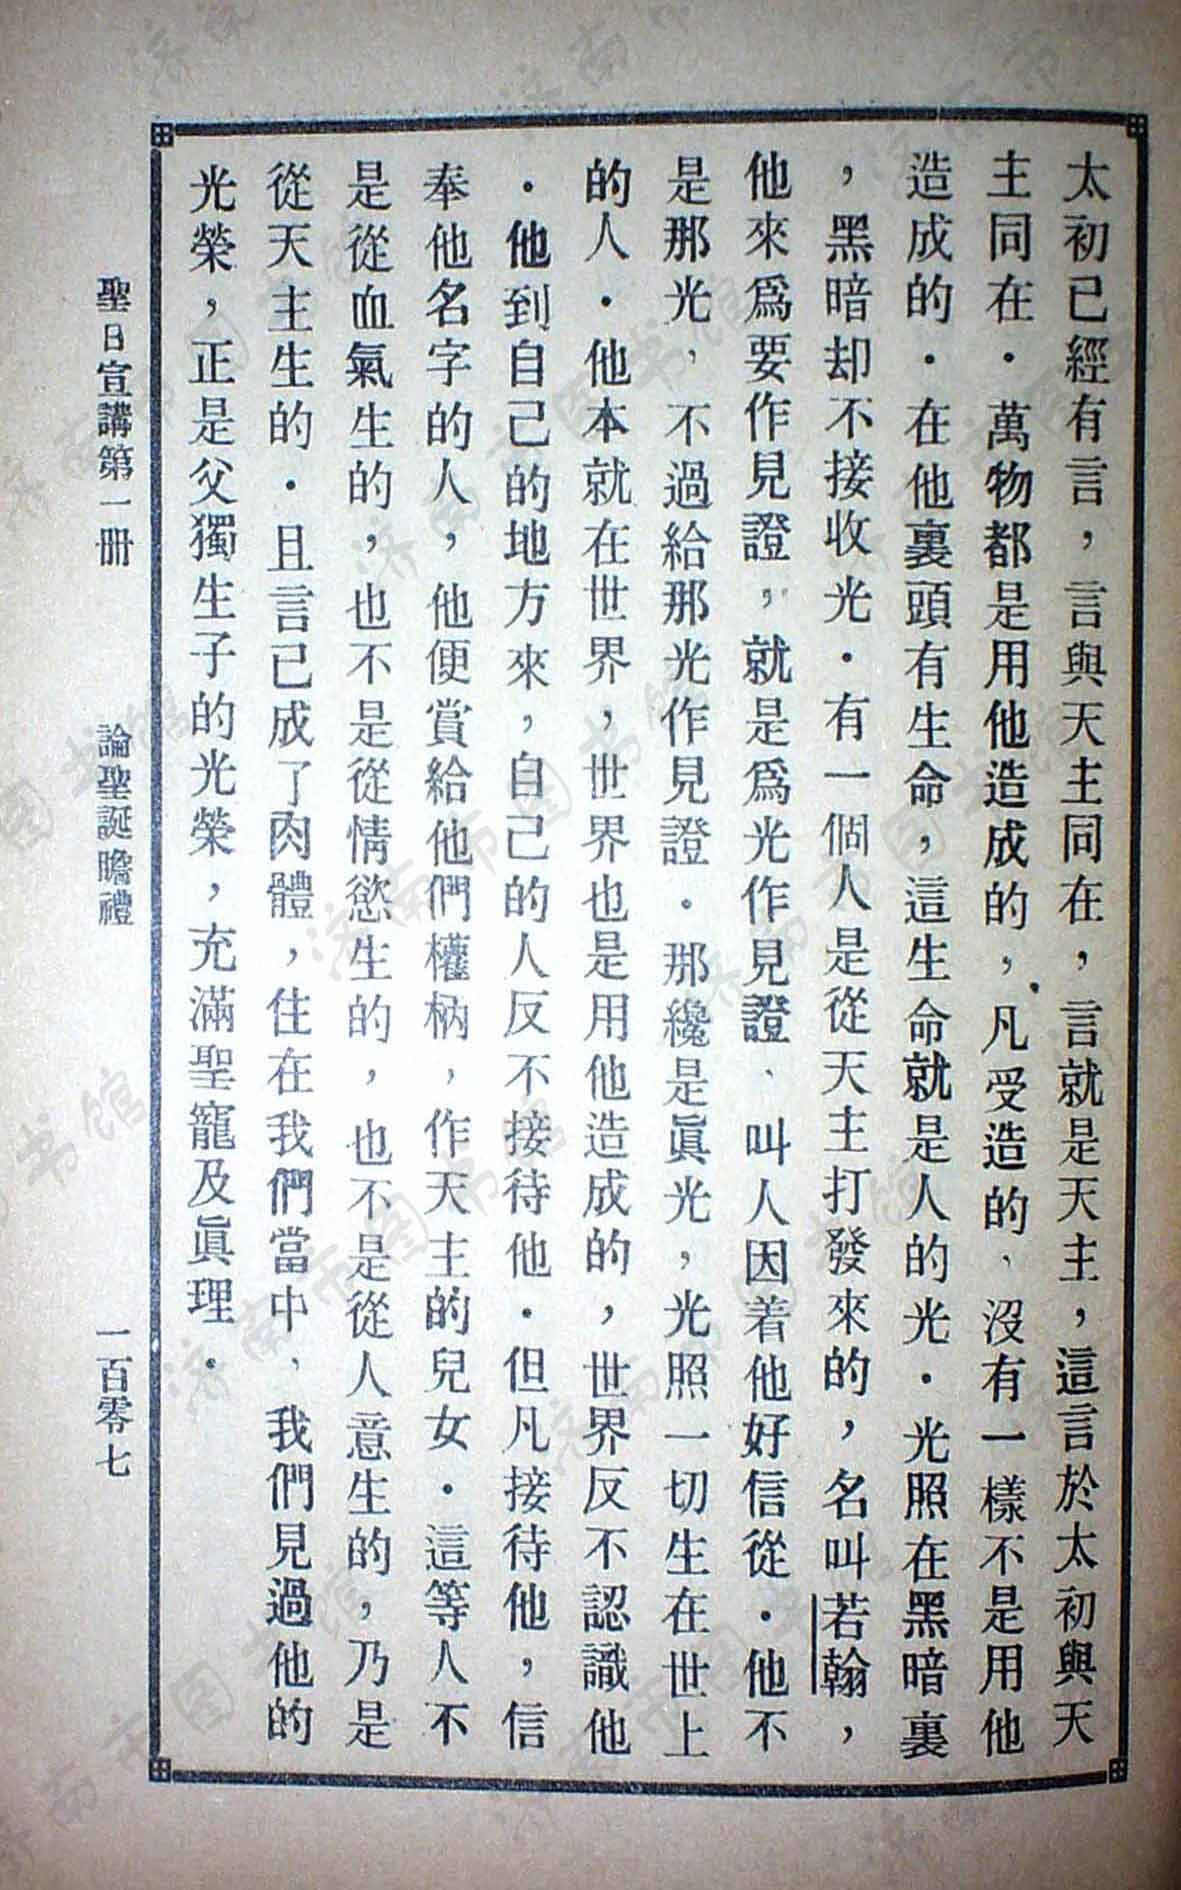 太初已經有言，言與天主同在，言就是天主，這言於太初與天
主同在．萬物都是用他造成的，凡受造的、沒有一樣不是用他
造成的．在他裏頭有生命，這生命就是人的光．光照在黑暗裏
，黑暗却不接收光．有一個人是從天主打發來的，名叫若翰，
他來爲要作見證，就是爲光作見證、叫人因着他好信從．他不
是那光，不過給那光作見證．那纔是眞光，光照一切生在世上
的人．他本就在世界，世界也是用他造成的，世界反不認識他
．他到自己的地方來，自己的人反不接待他．但凡接待他，信
奉他名字的人，他便賞給他們權柄，作天主的兒女．這等人不
是從血氣生的，也不是從情慾生的，也不是從人意生的，乃是
從天主生的．且言已成了肉體，住在我們當中、我們見過他的
光榮，正是父獨生子的光榮，充滿聖寵及眞理．
聖日宣講第一册　論聖誕瞻禮　一百零七
济南市图书馆